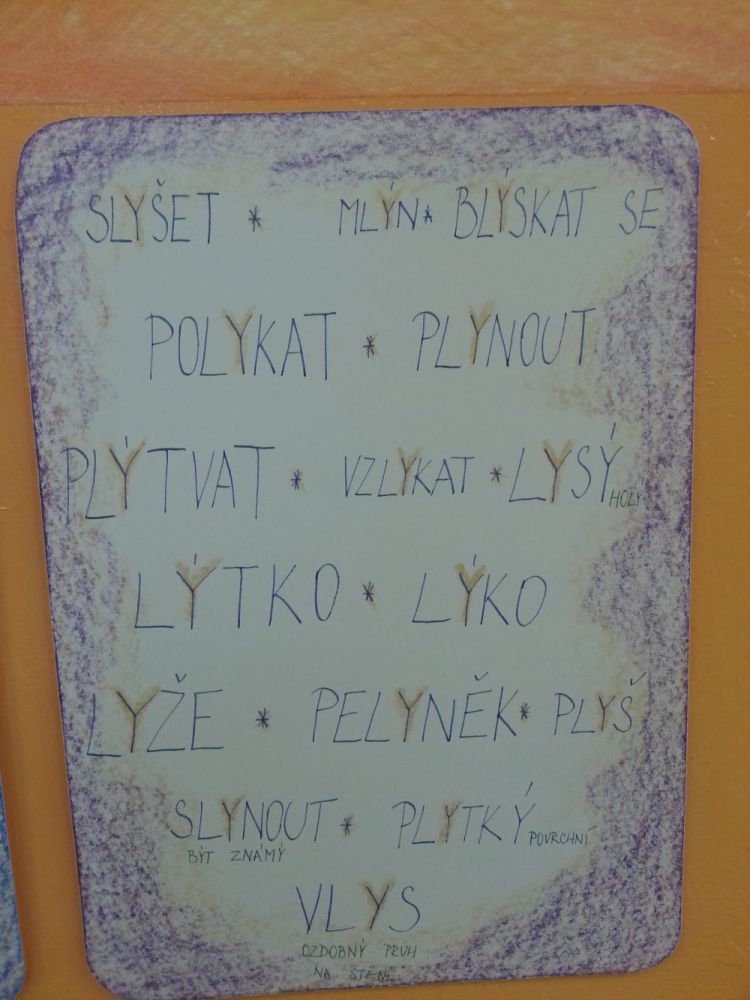 SLYŠET * MLÝN * BLÝSKAT SE
POLYKAT * PLYNOUT
PLÝTVAT * VZLYKAT * LYSÝ HOLÝ
LÝTKO * LÝKO
LYŽE * PELYNĚK * PLYŠ
SLYNOUT * PLYTKÝ POVRCHNÍ
BÝT ZNÁMÝ
VLYS
OZDOBNÝ PRUH
NA STĚNĚ